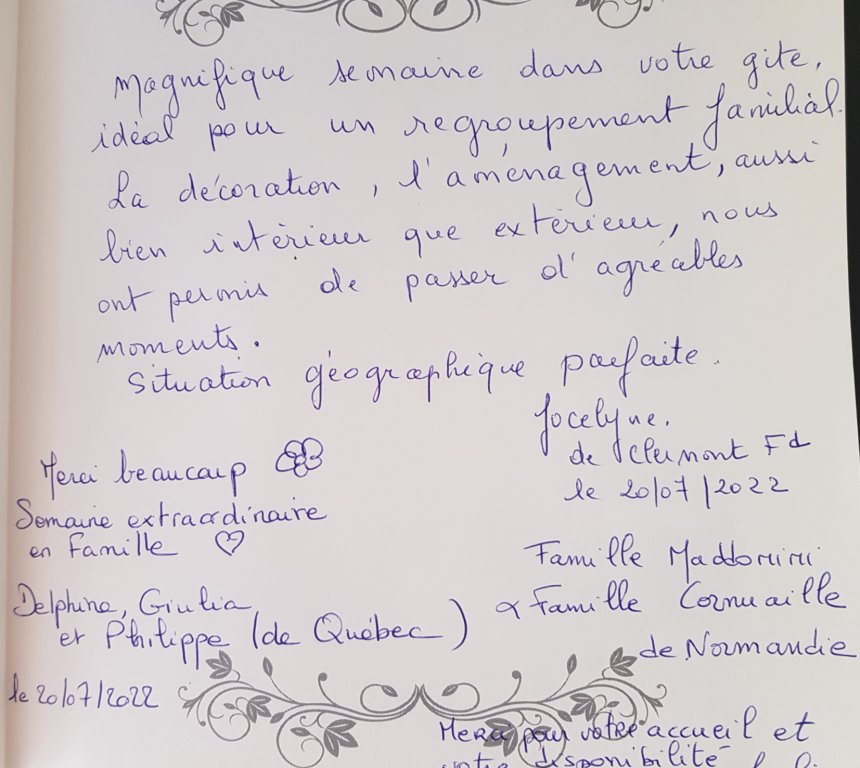 Magnifique semaine dans votre gite,
idéal pour un regroupement familial.
La décoration, l'aménagement, aussi
bien intérieur que extérieur, nous
ont permis de passer d'agréables
moments.
Situation géographique parfaite.
Jocelyne.
de Clermont Fd
le 20/07/2022
Merci beaucoup
Semaine extraordinaire
en Famille ♡
Delphine, Giulia
et Philippe (de Québec)
le 20/07/2022
Famille
& Famille Cornuaille
de Normandie
Merci pour votre accueil et
votre disponibilité